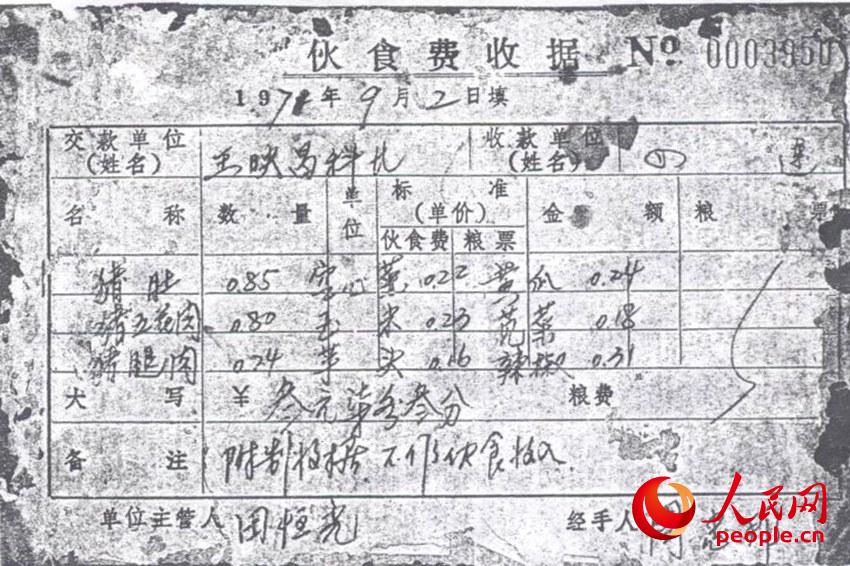 伙食费收据 No 0003950
197 年9月2日填
交款单位 收款单位
(姓名) 王映昌科长 (姓名) 四 连
名 称 数 量 单位 标 准 (单价) 金 额 粮 票
伙食费 粮票
猪肚 0.85 空心菜 0.22 黄瓜 0.24
猪五花肉 0.80 玉米 0.23 苋菜 0.18
猪腿肉 0.74 芋头 0.16 辣椒 0.31
大 写 ¥ 叁元柒分叁分 粮费
备 注 附 收据 不作伙食收入
单位主管人 田恒光 经手人
人民网
people.cn